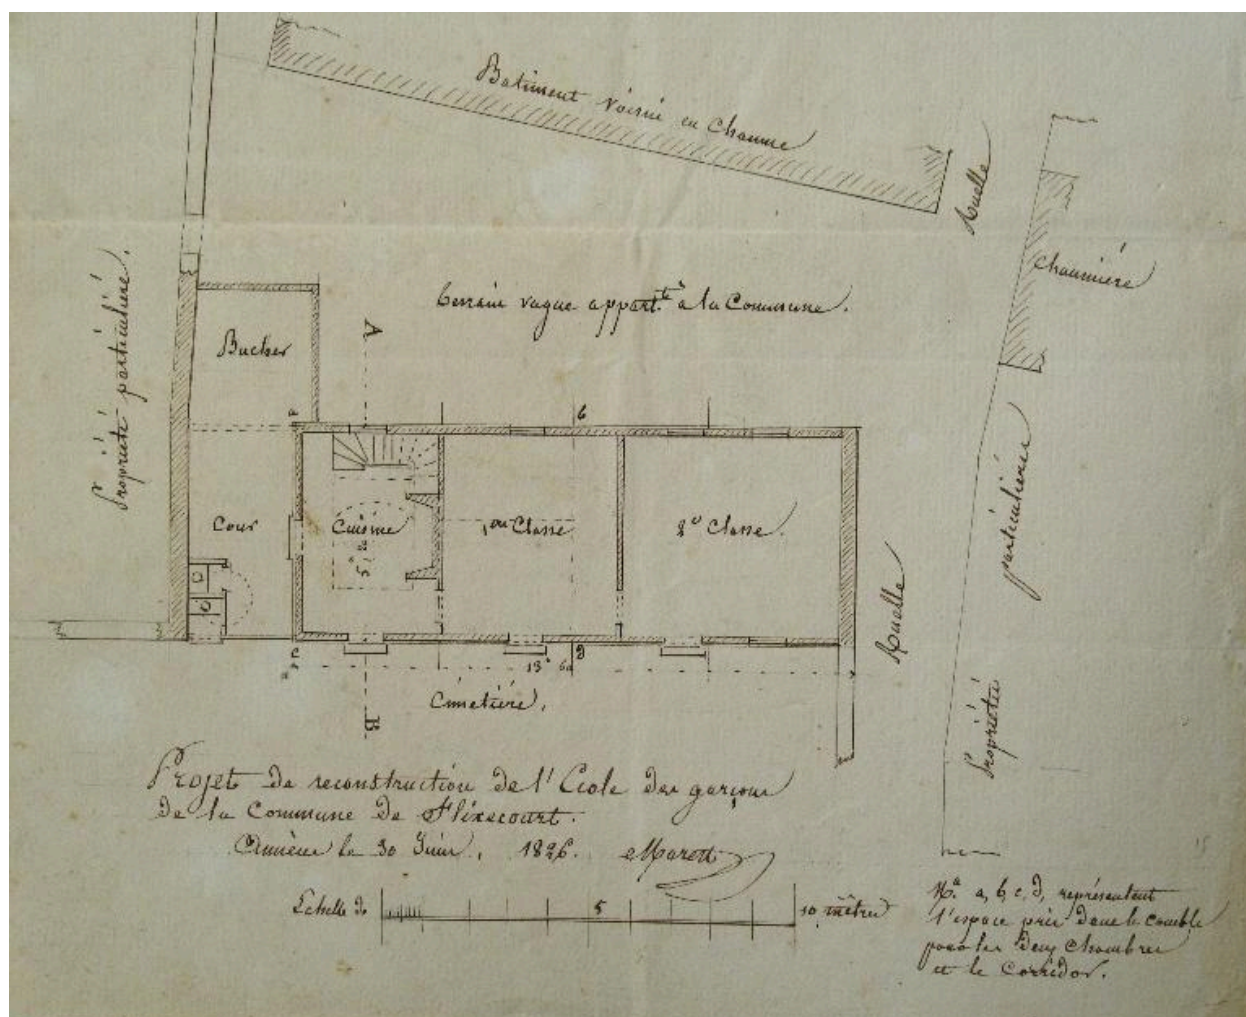 Batiment voisin en Chaume
Ruelle
Chaumière
Propriété particulière.
terrain vague appart.te à la Commune.
A
Bucher
a
b
Cour
Cuisine
1ere Classe
2e Classe.
Ruelle
Propriétés particulières
c
d
13m 60
Cimetière.
B
Projet de reconstruction de l'Ecole des garçons
de la Commune de Flixecourt.
Amiens le 30 Juin, 1826.
Echelle de
5
10 mètres
Na. a, b, c, d, représentent
l'espace pris dans le comble
pour les deux Chambres
et le Corridor.